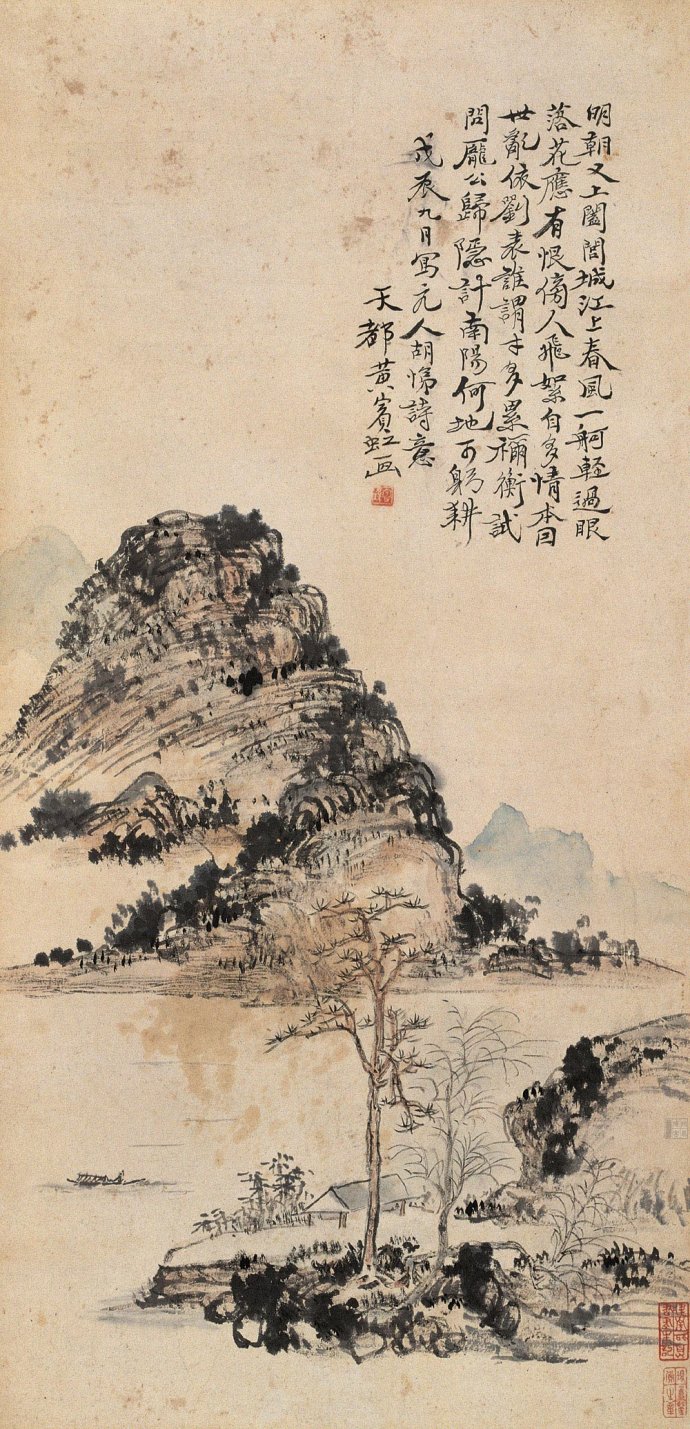 明朝又上闔閭城江上春風一舸輕過眼
落花應有恨傍人飛絮自多情本囙
世亂依劉表誰謂才多累禰衡試
問龐公歸隱計南陽何地可躬耕
戊辰九月寫元人胡悌詩意
天都黃賓虹画